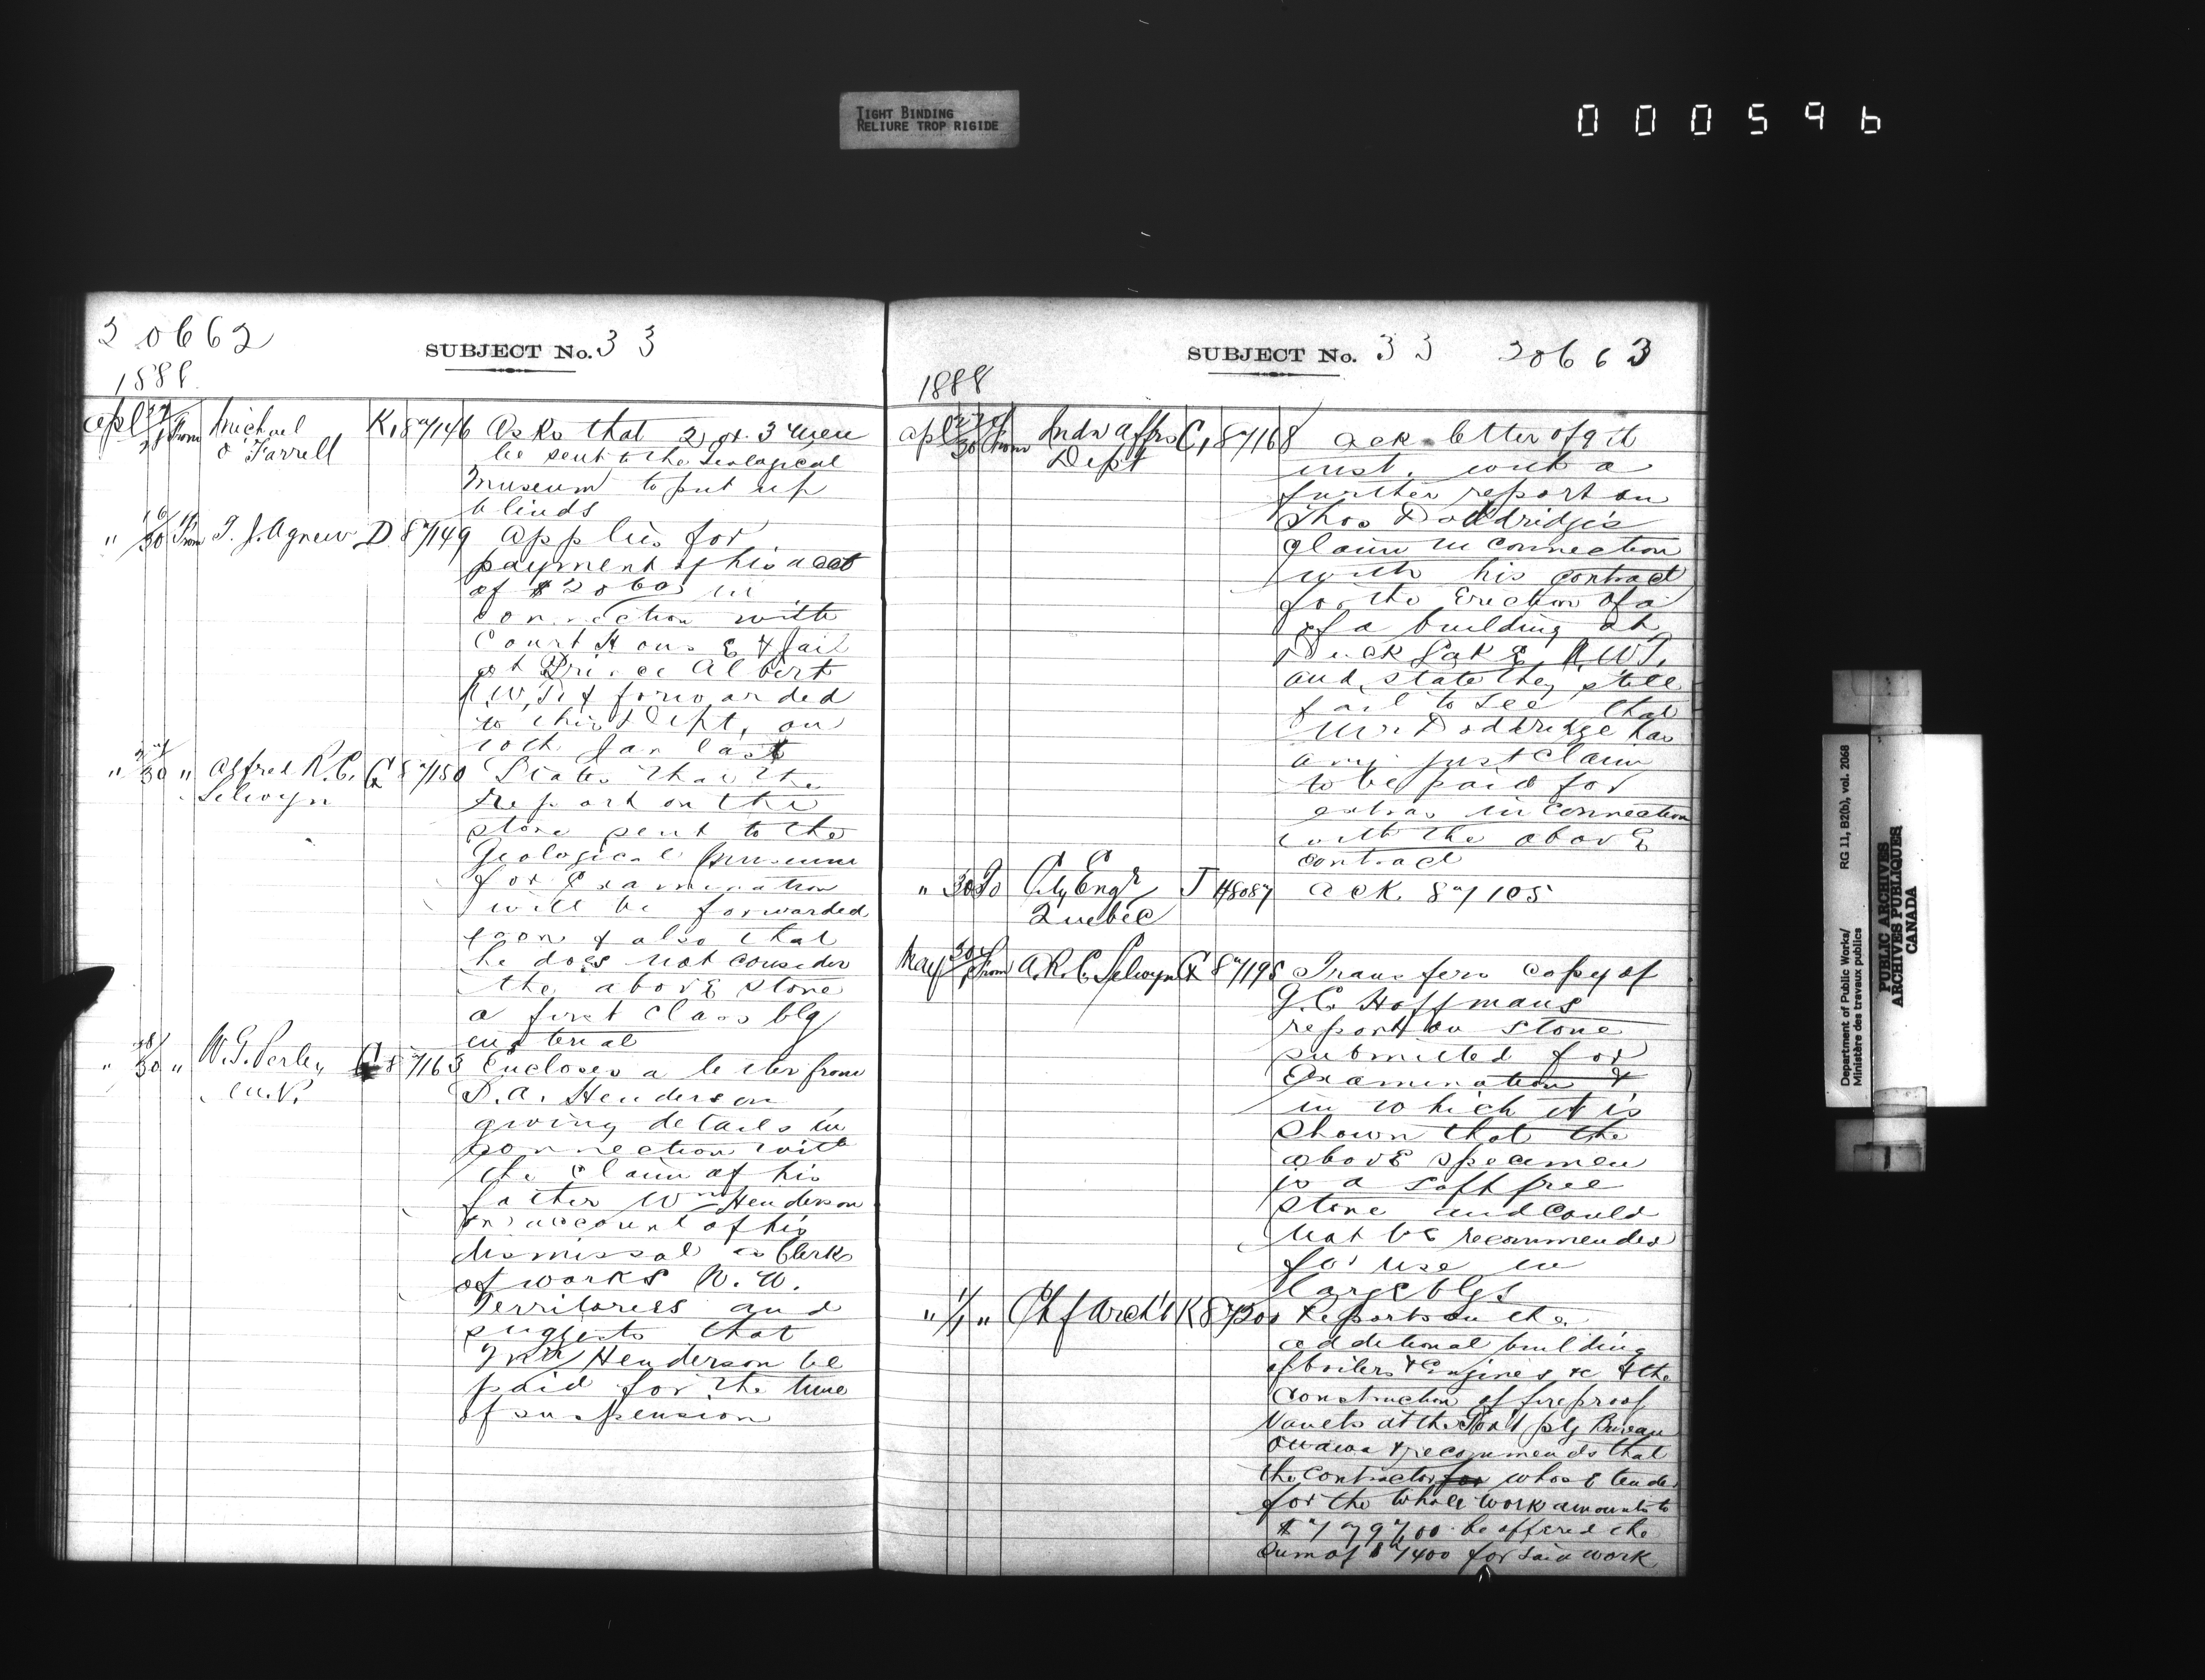 TIGHT BINDING
RELIURE TROP RIGIDE
000596
20662
SUBJECT No. 33
1888
Apl 27/28 From Michael O'Farrell K, 87146 Asks that 2 or 3 men
be sent to the Geological
Museum to put up
blinds
" 16/30 From T. J. Agnew D 87149 Applies for
payment of his acct
of $2060 in
connection with
Court House & Jail
at Prince Albert
N.W.T. & forwarded
to this Dept, on
10th Jan last
" /30 " Alfred R.C. Selwyn G 87150 States that the
report on the
stone sent to the
Geological Museum
for Examination
will be forwarded
soon & also that
he does not consider
the above stone
a first class blg
material
" 28/30 " H.F. Perley C 87163 Encloses a letter from
D.A. Henderson
giving details in
connection with
the claim of his
father Wm Henderson
on account of his
dismissal as Clerk
of works N.W.
Territories and
suggests that
Mr Henderson be
paid for the time
of suspension
SUBJECT No. 33 20663
1888
Apl 27/30 From Indn Affrs Dept C, 87168 Ack letter of 9th
inst. with a
further report on
Thos Doddridge's
claim in connection
with his contract
for the Erection of a
of a building at
Duck Lake, N.W.T.
and state they still
fail to see that
Mr. Doddridge has
any just claim
to be paid for
extras in connection
with the above
contract
" 30 To City Engr Quebec J 48087 ack. 87105
May 30/1 From A.R.C. Selwyn G 87195 Transfers copy of
G.C. Hoffmans
report on stone
submitted for
Examination &
in which it is
shown that the
above specimen
is a soft free
stone and could
not be recommended
for use in
large blgs
" 1/1 " Chf Archt K 87200 Reports on the
additional building
of boilers & Engines &c & the
construction of fireproof
Vaults at the Govt ptg Bureau
Ottawa & recommends that
the Contractor for whose tender
for the whole work amounts to
$7797.00 be offered the
Sum of $7400 for said work
Department of Public Works/ RG 11, B2(b), vol. 2068
Ministère des travaux publics
PUBLIC ARCHIVES
ARCHIVES PUBLIQUES
CANADA